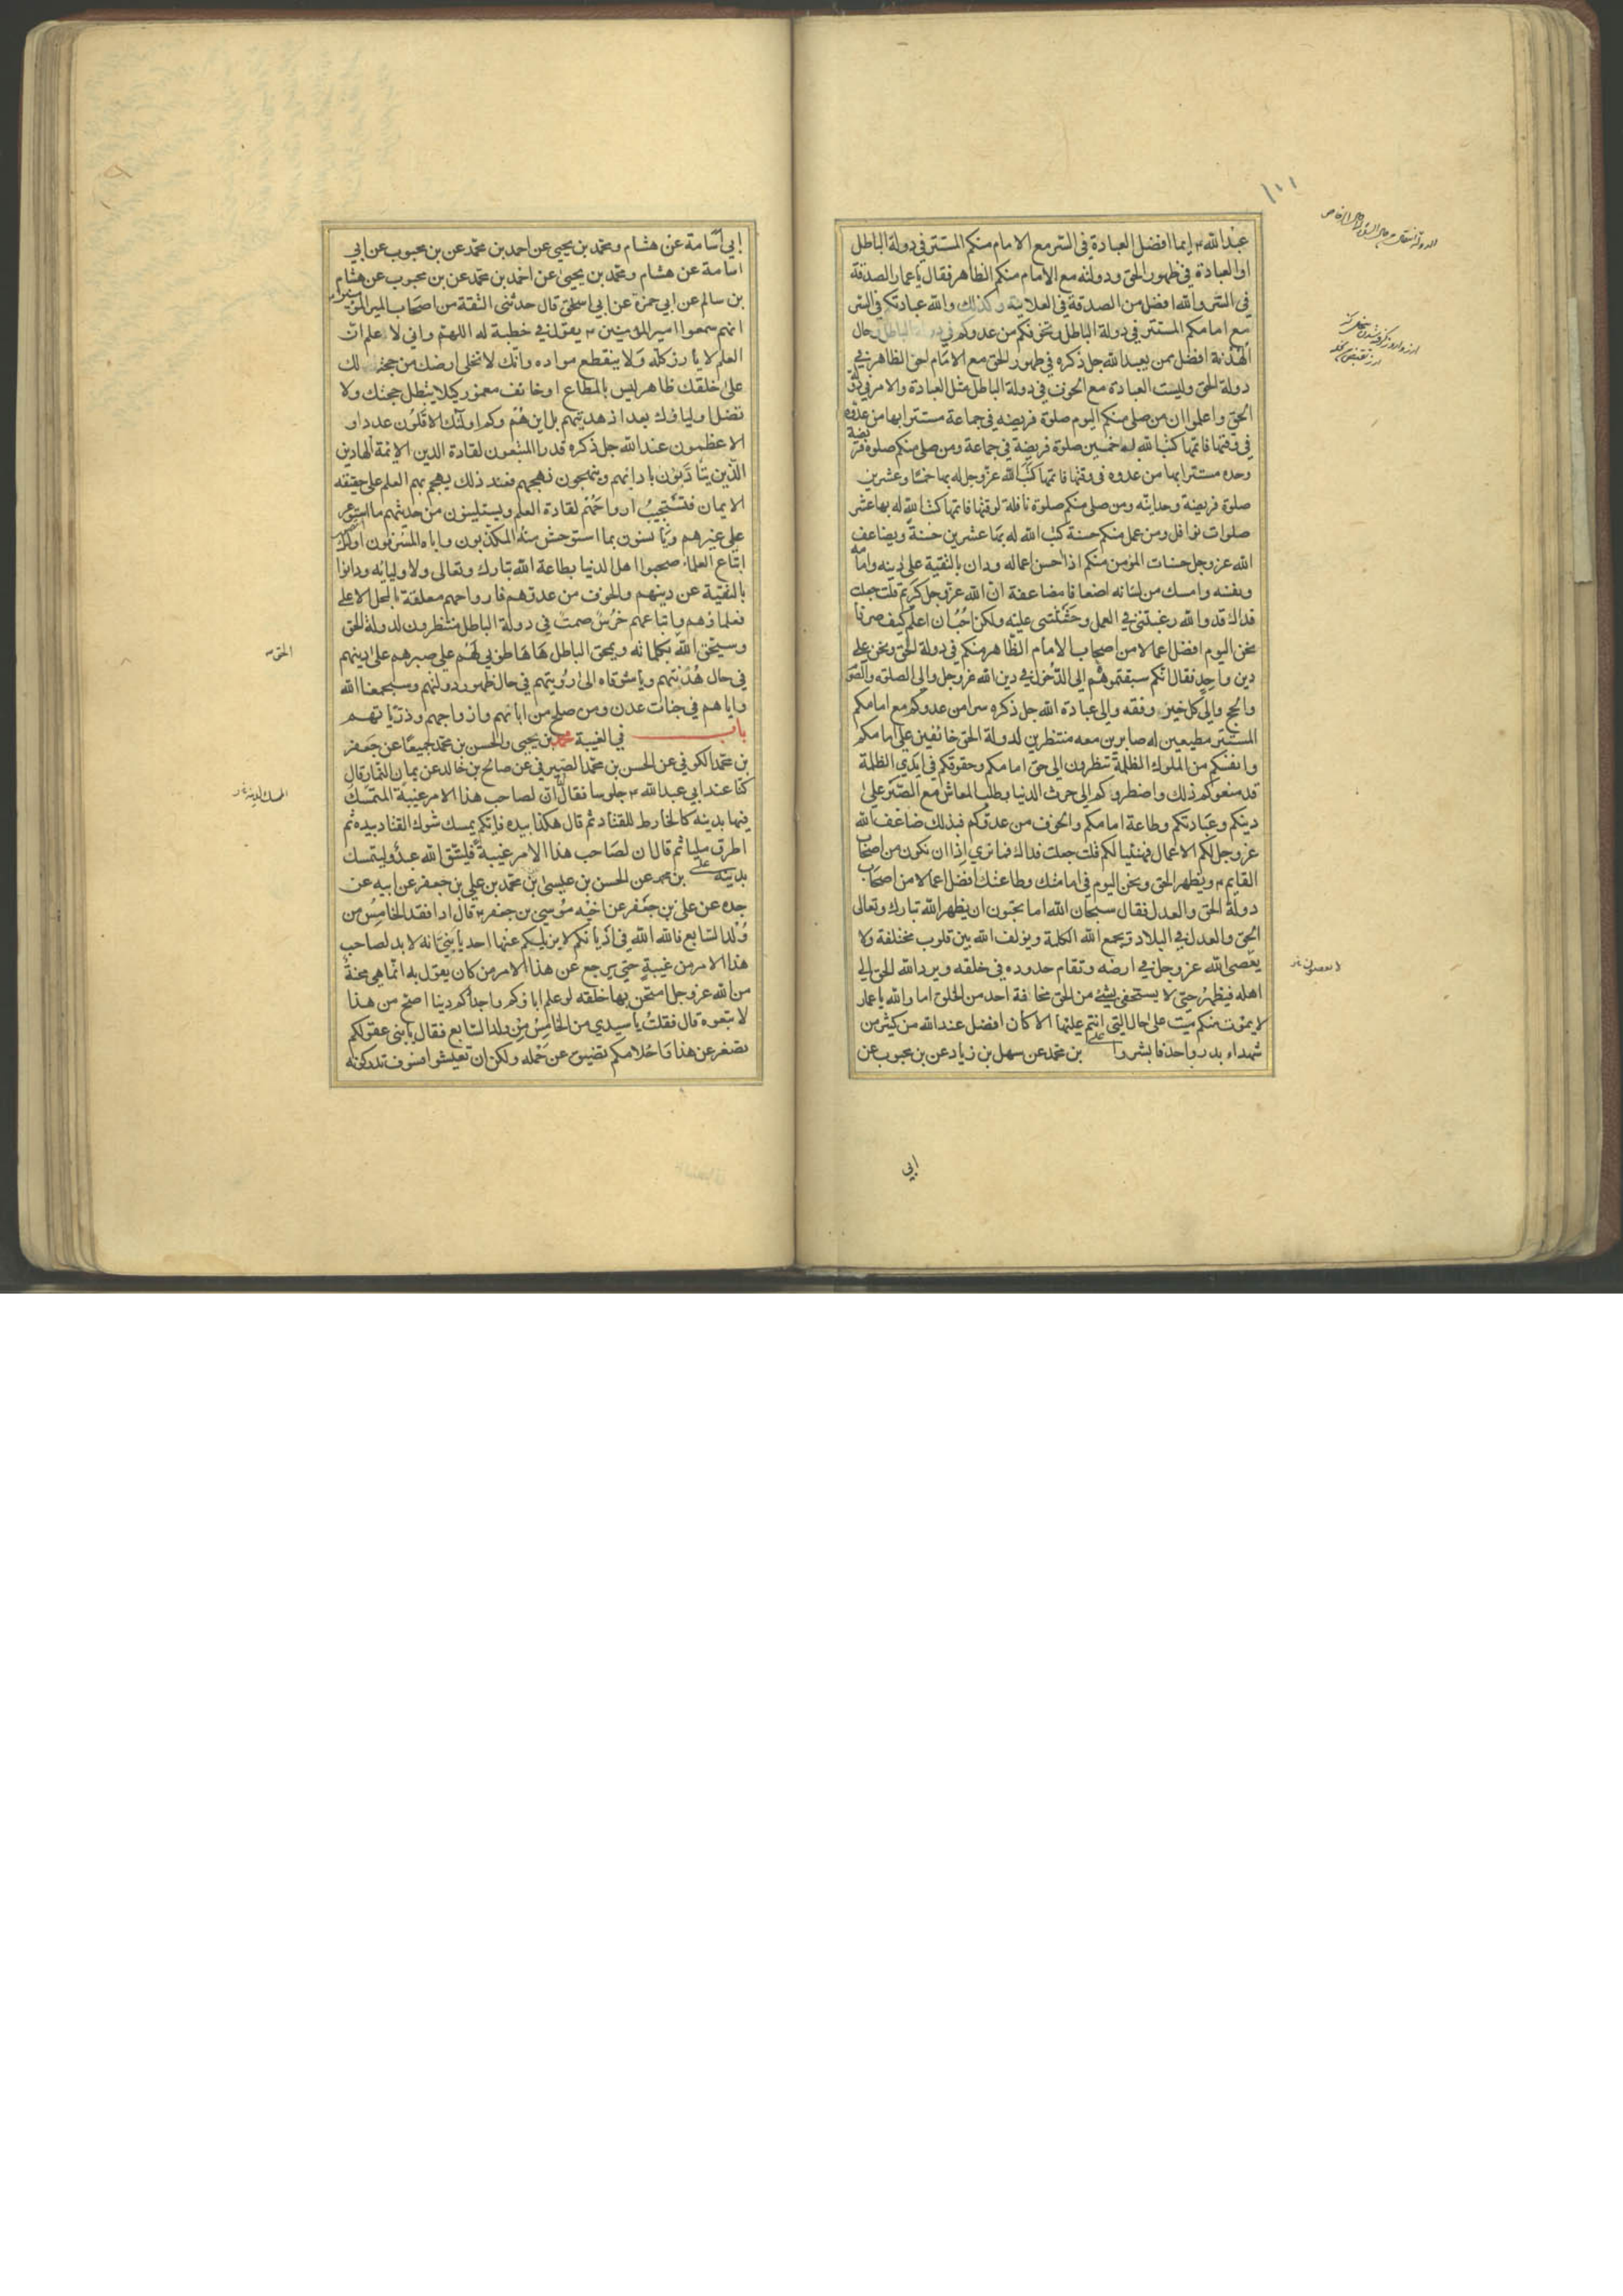 ١٠١
عبدالله ٤ ايما افضل العبادة في السر مع الامام منكم المستتر في دولة الباطل
او العبادة في ظهور الحق ودولته مع الامام منكم الظاهر فقال يا عمار الصدقة
في السر والله افضل من الصدقة في العلانية وكذلك والله عبادتكم في السر
مع امامكم المستتر في دولة الباطل وتخوفكم من عدوكم في دولة الباطل وحال
الهدنة افضل ممن يعبد الله جل ذكره في ظهور الحق مع الامام لحق الظاهر في
دولة الحق وليست العبادة مع الخوف في دولة الباطل مثل العبادة والامر في دولة
الحق واعلموا ان من صلى منكم اليوم صلوة فريضه في جماعة مستترا بها من عدوه
في وقتها فاتمها كتب الله له خمسين صلوة فريضة في جماعة ومن صلى منكم صلوة فريضة
وحده مستترا بها من عدوه في وقتها فاتمها كتب الله عز وجل له بها خمسا وعشرين
صلوة فريضة وحدانيه ومن صلى منكم صلوة نافلة لوقتها فاتمها كتب الله له بها عشر
صلوات نوافل ومن عمل منكم حسنة كتب الله له بها عشرين حسنة ويضاعف
الله عز وجل حسنات المؤمن منكم اذا احسن اعماله ودان بالتقية على دينه وامامه
ونفسه وامسك من لسانه اضعافا مضاعفة ان الله عز وجل كريم قلت جعلت
فداك قد والله رغبتني في العمل وحثثتني عليه ولكن احب ان اعلم كيف صرنا
نحن اليوم افضل اعمالا من اصحاب الامام الظاهر منكم في دولة الحق ونحن على
دين واحد فقال انكم سبقتموهم الى الدخول في دين الله عز وجل والى الصلوة والصوم
والحج والى كل خير وفقه والى عبادة الله جل ذكره سرا من عدوكم مع امامكم
المستتر مطيعين له صابرين معه منتظرين لدولة الحق خائفين على امامكم
وانفسكم من الملوك الظلمة تنظرون الى حق امامكم وحقوقكم في ايدي الظلمة
قد منعوكم ذلك واضطروكم الى حرث الدنيا وطلب المعاش مع الصبر على
دينكم وعبادتكم وطاعة امامكم والخوف من عدوكم فبذلك ضاعف الله
عز وجل لكم الاعمال فهنيئا لكم قلت جعلت فداك فما ترى اذا ان نكون من اصحاب
القايم ٤ ويظهر الحق ونحن اليوم في امامتك وطاعتك افضل اعمالا من اصحاب
دولة الحق والعدل فقال سبحان الله اما تحبون ان يظهر الله تبارك وتعالى
الحق والعدل في البلاد ويجمع الله الكلمة ويولف الله بين قلوب مختلفة ولا
يعصى الله عز وجل في ارضه وتقام حدوده في خلقه ويرد الله الحق الى
اهله فيظهر حتى لا يستخفي بشئ من الحق مخافة احد من الخلق اما والله يا عمار
لا يموت منكم ميت على حال التي انتم عليها الا كان افضل عند الله من كثير من
شهداء بدر واحد فابشروا علي بن محمد عن سهل بن زياد عن بن محبوب عن
ابي
ابي اسامة عن هشام ومحمد بن يحيى عن احمد بن محمد عن بن محبوب عن ابي
اسامة عن هشام ومحمد بن يحيى عن احمد بن محمد عن بن محبوب عن هشام
بن سالم عن ابي حمزة عن ابي اسحق قال حدثني الثقة من اصحاب امير المومنين
انهم سمعوا امير المؤمنين ٤ يقول في خطبة له اللهم واني لاعلم ان
العلم لا يارز كله ولا ينقطع مواده وانك لا تخلى ارضك من حجة لك
على خلقك ظاهر ليس بالمطاع او خائف مغمور كيلا يبطل حجتك ولا
تضل اولياؤك بعد اذ هديتهم بل اين هم وكم اولئك الاقلون عددا و
الاعظمون عند الله جل ذكره قدرا المتبعون لقادة الدين الائمة الهادين
الذين يتأدبون بادابهم وينهجون نهجهم فعند ذلك يهجم بهم العلم على حقيقته
الايمان فتستجيب ارواحهم لقادة العلم ويستلينون من حديثهم ما استوعر
على غيرهم ويأنسون بما استوحش منه المكذبون واباه المسرفون اولئك
اتباع العلماء صحبوا اهل الدنيا بطاعة الله تبارك وتعالى ولاوليائه ودانوا
بالتقية عن دينهم والخوف من عدوهم فارواحهم معلقة بالمحل الاعلى
فعلماؤهم واتباعهم خرس صمت في دولة الباطل منتظرون لدولة الحق
وسيحق الله بكلماته ويمحق الباطل ها ها طوبى لهم على صبرهم على دينهم
في حال هدنتهم ويا شوقاه الى رؤيتهم في حال ظهور دولتهم وسيجمعنا الله
واياهم في جنات عدن ومن صلح من ابائهم وازواجهم وذرياتهم
باب في الغيبة محمد بن يحيى والحسن بن محمد جميعا عن جعفر
بن محمد الكوفي عن الحسن بن محمد الصيرفي عن صالح بن خالد عن يمان التمار قال
كنا عند ابي عبد الله ٤ جلوسا فقال ان لصاحب هذا الامر غيبة المتمسك
فيها بدينه كالخارط للقتاد ثم قال هكذا بيده فايكم يمسك شوك القتاد بيده ثم
اطرق مليا ثم قال ان لصاحب هذا الامر غيبة فليتق الله عبد وليتمسك
بدينه علي بن محمد عن الحسن بن عيسى بن محمد بن علي بن جعفر عن ابيه عن
جده عن علي بن جعفر عن اخيه موسى بن جعفر ٤ قال اذا فقد الخامس من
ولد السابع فالله الله في اديانكم لا يزيلكم عنها احد يا بني انه لا بد لصاحب
هذا الامر من غيبة حتى يرجع عن هذا الامر من كان يقول به انما هي محنة
من الله عز وجل امتحن بها خلقه لو علم اباؤكم واجدادكم دينا اصح من هذا
لاتبعوه قال فقلت يا سيدي من الخامس من ولد السابع فقال يا بني عقولكم
تصغر عن هذا واحلامكم تضيق عن حمله ولكن ان تعيشوا فسوف تدركونه
الحق